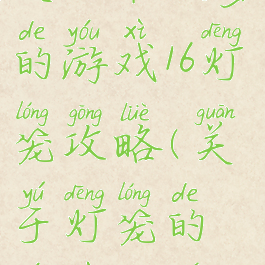 de yóu xì dēng
的游戏16灯
lóng gōng lüè guān
笼攻略(关
yú dēng lóng de
于灯笼的